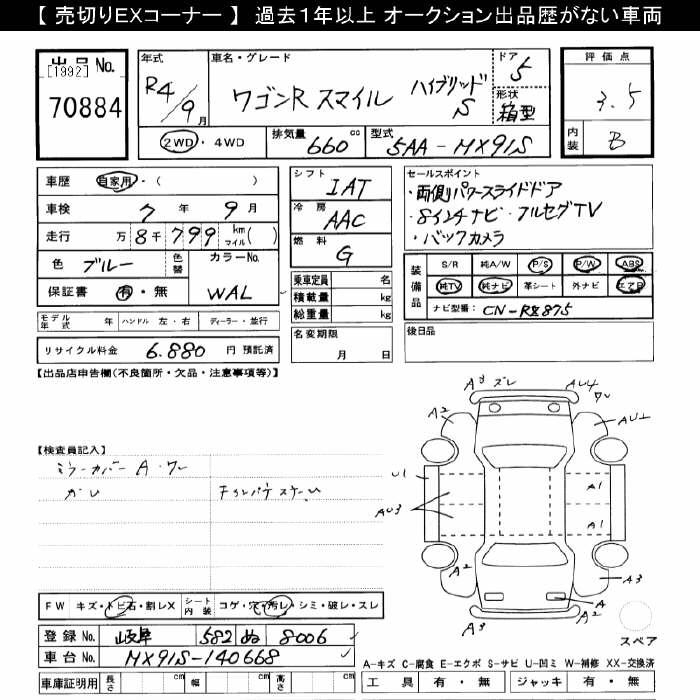 【 売切りEXコーナー 】 過去1年以上 オークション出品歴がない車両
出品 No.
[1992]
70884
年式
R4/9月
車名・グレード
ワゴンR スマイル ハイブリッド S
ドア
5
形状
箱型
2WD・4WD
排気量 660 cc
型式 5AA-MX91S
評価点
3.5
内装 B
車歴 自家用・( )
車検 7 年 9 月
走行 万 8 千 799 km マイル( )
色 ブルー 色替 カラーNo.
保証書 有・無 WAL
シフト
IAT
冷房
AAC
燃料
G
乗車定員 名
積載量 kg
総重量 kg
名変期限
月 日
セールスポイント
・両側パワースライドドア
・8インチナビ・フルセグTV
・バックカメラ
装備品
S/R 純A/W P/S P/W ABS
純TV 純ナビ 革シート 外ナビ エアB
ナビ型番: CN-RZ875
後日品
モデル年式 年 ハンドル 左・右 ディーラー・並行
リサイクル料金 6.880 円 預託済
【出品店申告欄(不良箇所・欠品・注意事項等)】
【検査員記入】
ミラーカバー A・ワレ
ガレ
A3 ズレ
AU4
ワレ
A2
AU2
U1
A1
AU3
A1
A2
A3
A
A3
スペア
FW キズ・トビ石・割レX シート内装 コゲ・穴・汚レ・シミ・破レ・スレ
登録 No. 岐阜 582 ぬ 8006
車台 No. MX91S-140668
車庫証明用 長さ cm 幅 cm 高さ cm
A-キズ C-腐食 E-エクボ S-サビ U-凹ミ W-補修 XX-交換済
工具 有・無 ジャッキ 有・無